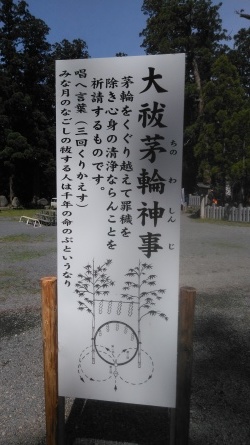 大祓茅輪神事
ちのわしんじ
茅輪をくぐり越えて罪穢を
除き心身の清浄ならんことを
祈請するものです。
唱へ言葉（三回くりかえす）
みな月のなごしの祓する人は千年の命のぶというなり